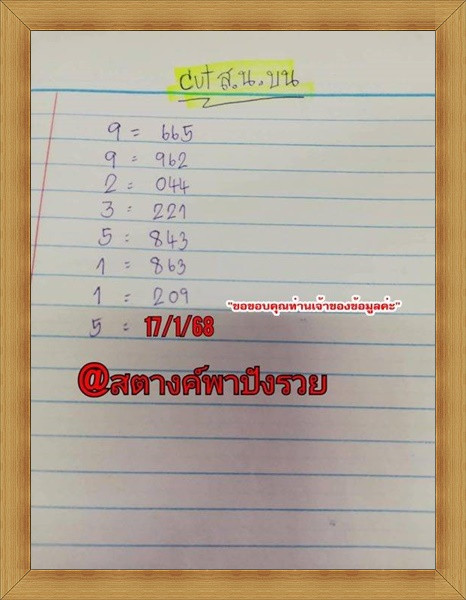 cut ส.น.บน
9 = 665
9 = 962
2 = 044
3 = 221
5 = 843
1 = 863
1 = 209
"ขอขอบคุณท่านเจ้าของข้อมูลค่ะ"
5 = 17/1/68
@สตางค์พาปังรวย